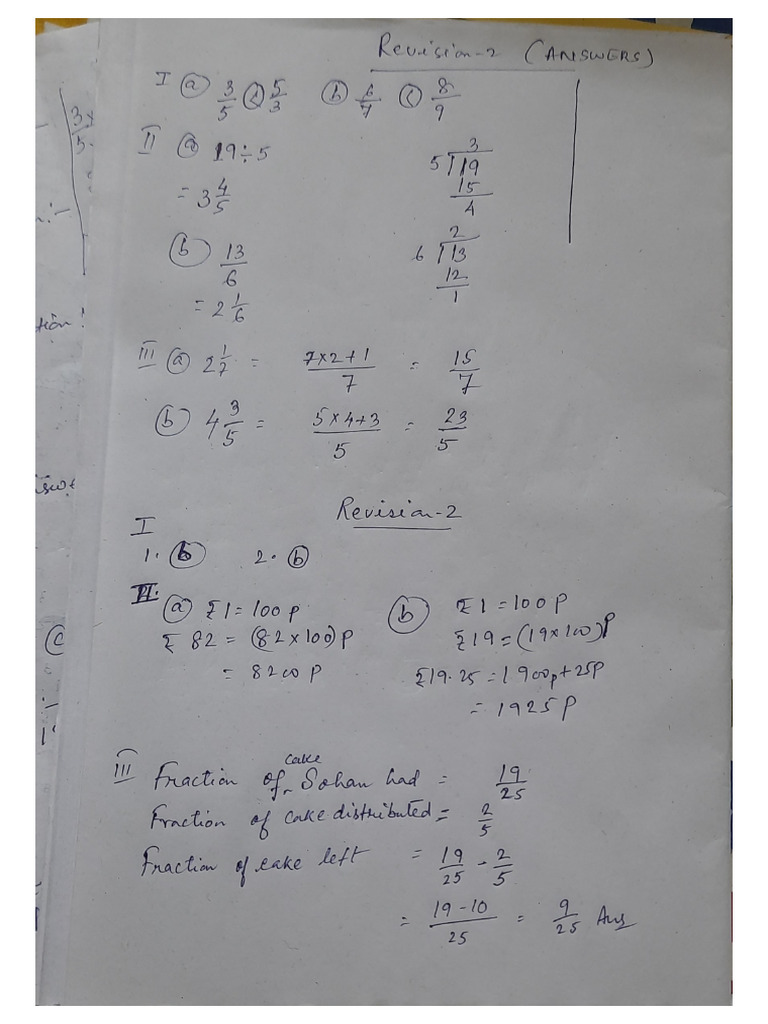 Revision-2 (ANSWERS)
I (a) 3/5 < 5/3 (b) 6/7 < 8/9
II (a) 19÷5
= 3 4/5
3
5 19
15
4
(b) 13/6
= 2 1/6
2
6 13
12
1
III (a) 2 1/7 = 7×2+1/7 = 15/7
(b) 4 3/5 = 5×4+3/5 = 23/5
Revision-2
I
1. (b) 2. (b)
II.
(a) ₹1 = 100 p
₹ 82 = (82×100)p
= 8200 p
(b) ₹1 = 100p
₹19 = (19×100)p
₹19.25 = 1900p+25p
= 1925p
III Fraction of cake Sohan had = 19/25
Fraction of cake distributed = 2/5
Fraction of cake left = 19/25 - 2/5
= 19-10/25 = 9/25 Ans